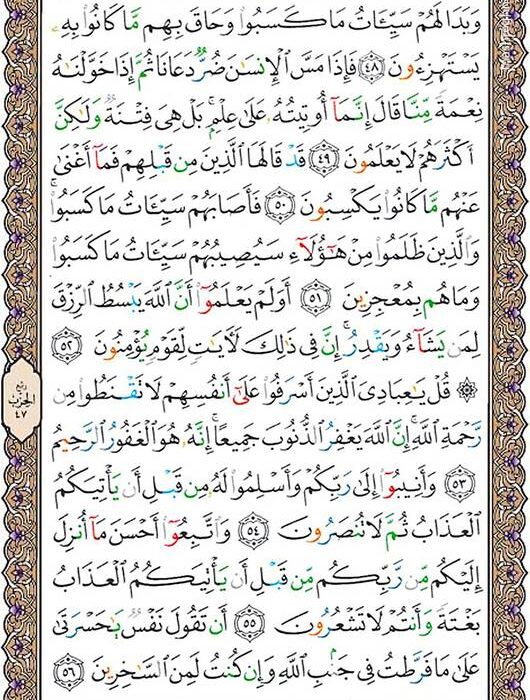 وَبَدَا لَهُمْ سَيِّـَٔاتُ مَا كَسَبُوا۟ وَحَاقَ بِهِم مَّا كَانُوا۟ بِهِۦ
يَسْتَهْزِءُونَ ٤٨ فَإِذَا مَسَّ ٱلْإِنسَـٰنَ ضُرٌّ دَعَانَا ثُمَّ إِذَا خَوَّلْنَـٰهُ
نِعْمَةً مِّنَّا قَالَ إِنَّمَآ أُوتِيتُهُۥ عَلَىٰ عِلْمٍۭ ۚ بَلْ هِىَ فِتْنَةٌ وَلَـٰكِنَّ
أَكْثَرَهُمْ لَا يَعْلَمُونَ ٤٩ قَدْ قَالَهَا ٱلَّذِينَ مِن قَبْلِهِمْ فَمَآ أَغْنَىٰ
عَنْهُم مَّا كَانُوا۟ يَكْسِبُونَ ٥٠ فَأَصَابَهُمْ سَيِّـَٔاتُ مَا كَسَبُوا۟ ۚ
وَٱلَّذِينَ ظَلَمُوا۟ مِنْ هَـٰٓؤُلَآءِ سَيُصِيبُهُمْ سَيِّـَٔاتُ مَا كَسَبُوا۟
وَمَا هُم بِمُعْجِزِينَ ٥١ أَوَلَمْ يَعْلَمُوٓا۟ أَنَّ ٱللَّهَ يَبْسُطُ ٱلرِّزْقَ
لِمَن يَشَآءُ وَيَقْدِرُ ۚ إِنَّ فِى ذَٰلِكَ لَـَٔايَـٰتٍ لِّقَوْمٍ يُؤْمِنُونَ ٥٢
۞ قُلْ يَـٰعِبَادِىَ ٱلَّذِينَ أَسْرَفُوا۟ عَلَىٰٓ أَنفُسِهِمْ لَا تَقْنَطُوا۟ مِن
ربع الحزب ٤٧
رَّحْمَةِ ٱللَّهِ ۚ إِنَّ ٱللَّهَ يَغْفِرُ ٱلذُّنُوبَ جَمِيعًا ۚ إِنَّهُۥ هُوَ ٱلْغَفُورُ ٱلرَّحِيمُ
٥٣ وَأَنِيبُوٓا۟ إِلَىٰ رَبِّكُمْ وَأَسْلِمُوا۟ لَهُۥ مِن قَبْلِ أَن يَأْتِيَكُمُ
ٱلْعَذَابُ ثُمَّ لَا تُنصَرُونَ ٥٤ وَٱتَّبِعُوٓا۟ أَحْسَنَ مَآ أُنزِلَ
إِلَيْكُم مِّن رَّبِّكُم مِّن قَبْلِ أَن يَأْتِيَكُمُ ٱلْعَذَابُ
بَغْتَةً وَأَنتُمْ لَا تَشْعُرُونَ ٥٥ أَن تَقُولَ نَفْسٌ يَـٰحَسْرَتَىٰ
عَلَىٰ مَا فَرَّطتُ فِى جَنۢبِ ٱللَّهِ وَإِن كُنتُ لَمِنَ ٱلسَّـٰخِرِينَ ٥٦